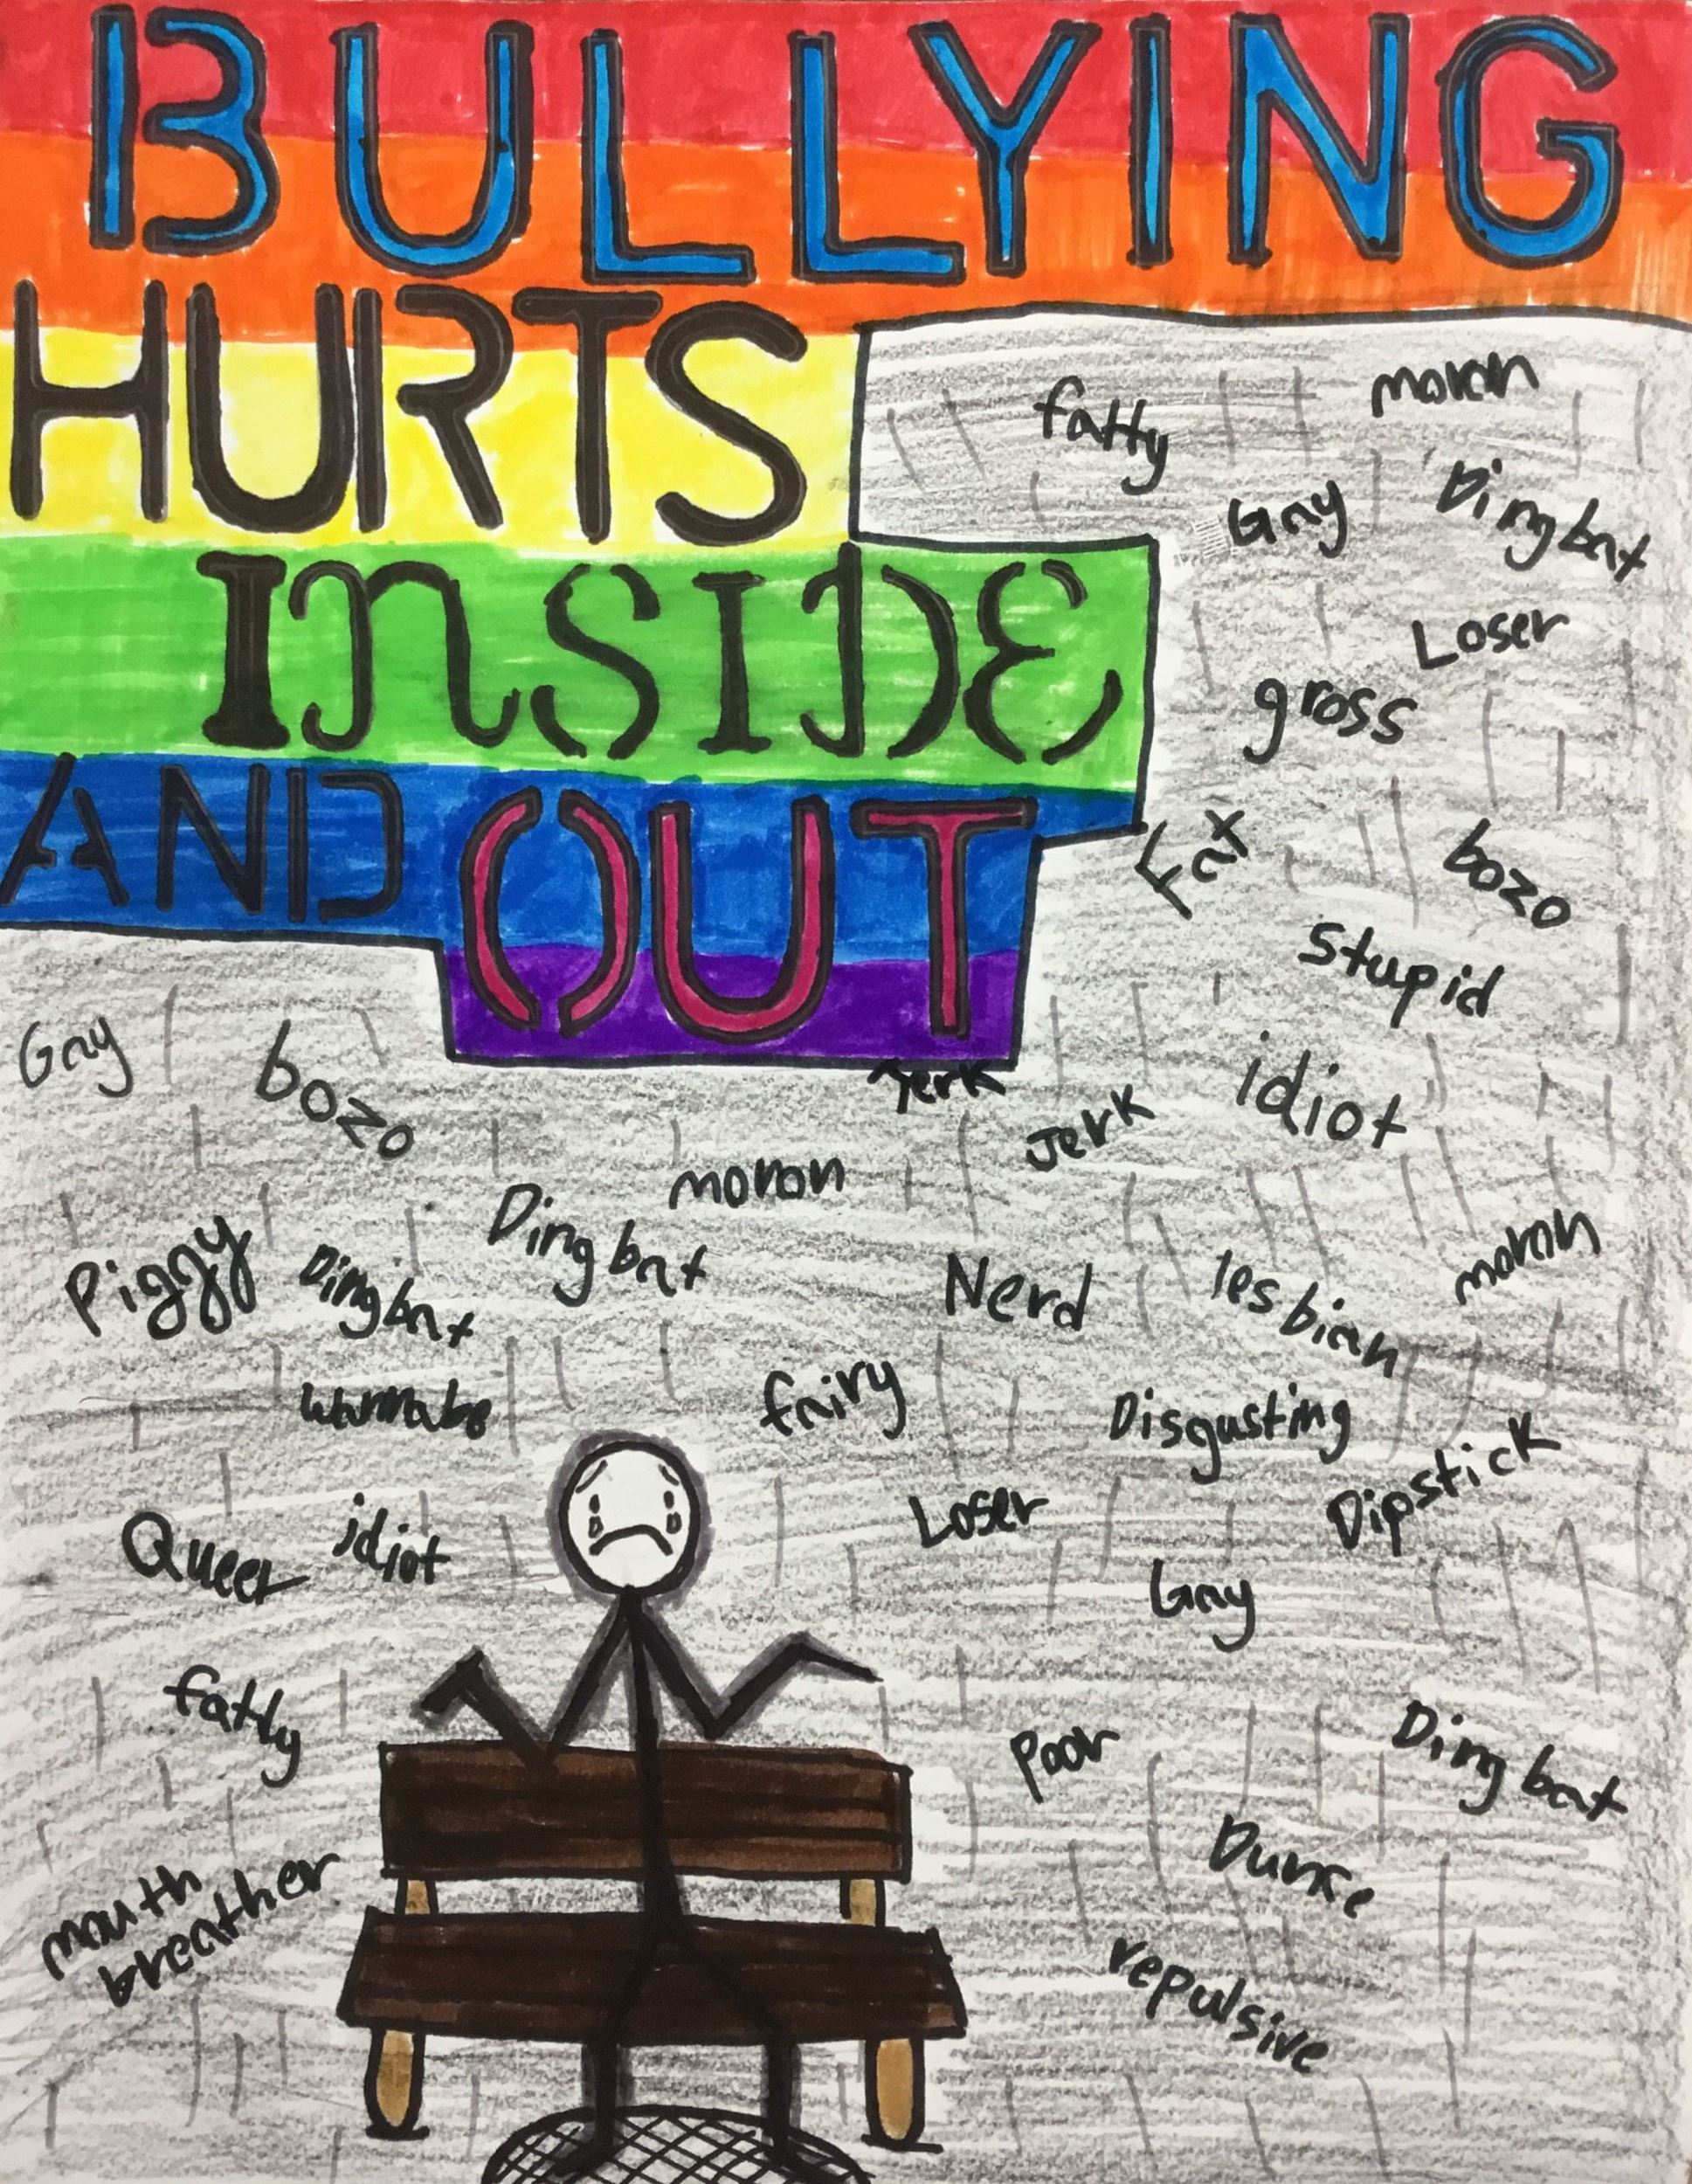 BULLYING
HURTS
INSIDE
AND OUT
moron
fatty
Gay
Dingbat
Loser
gross
Fat
bozo
stupid
Gay
bozo
idiot
Jerk
Jerk
moron
Dingbat
Piggy
Dingbat
Nerd
lesbian
moron
wannabe
fairy
Disgusting
Dipstick
Queer
idiot
Loser
Gay
fatty
Poor
Dingbat
mouth
breather
repulsive